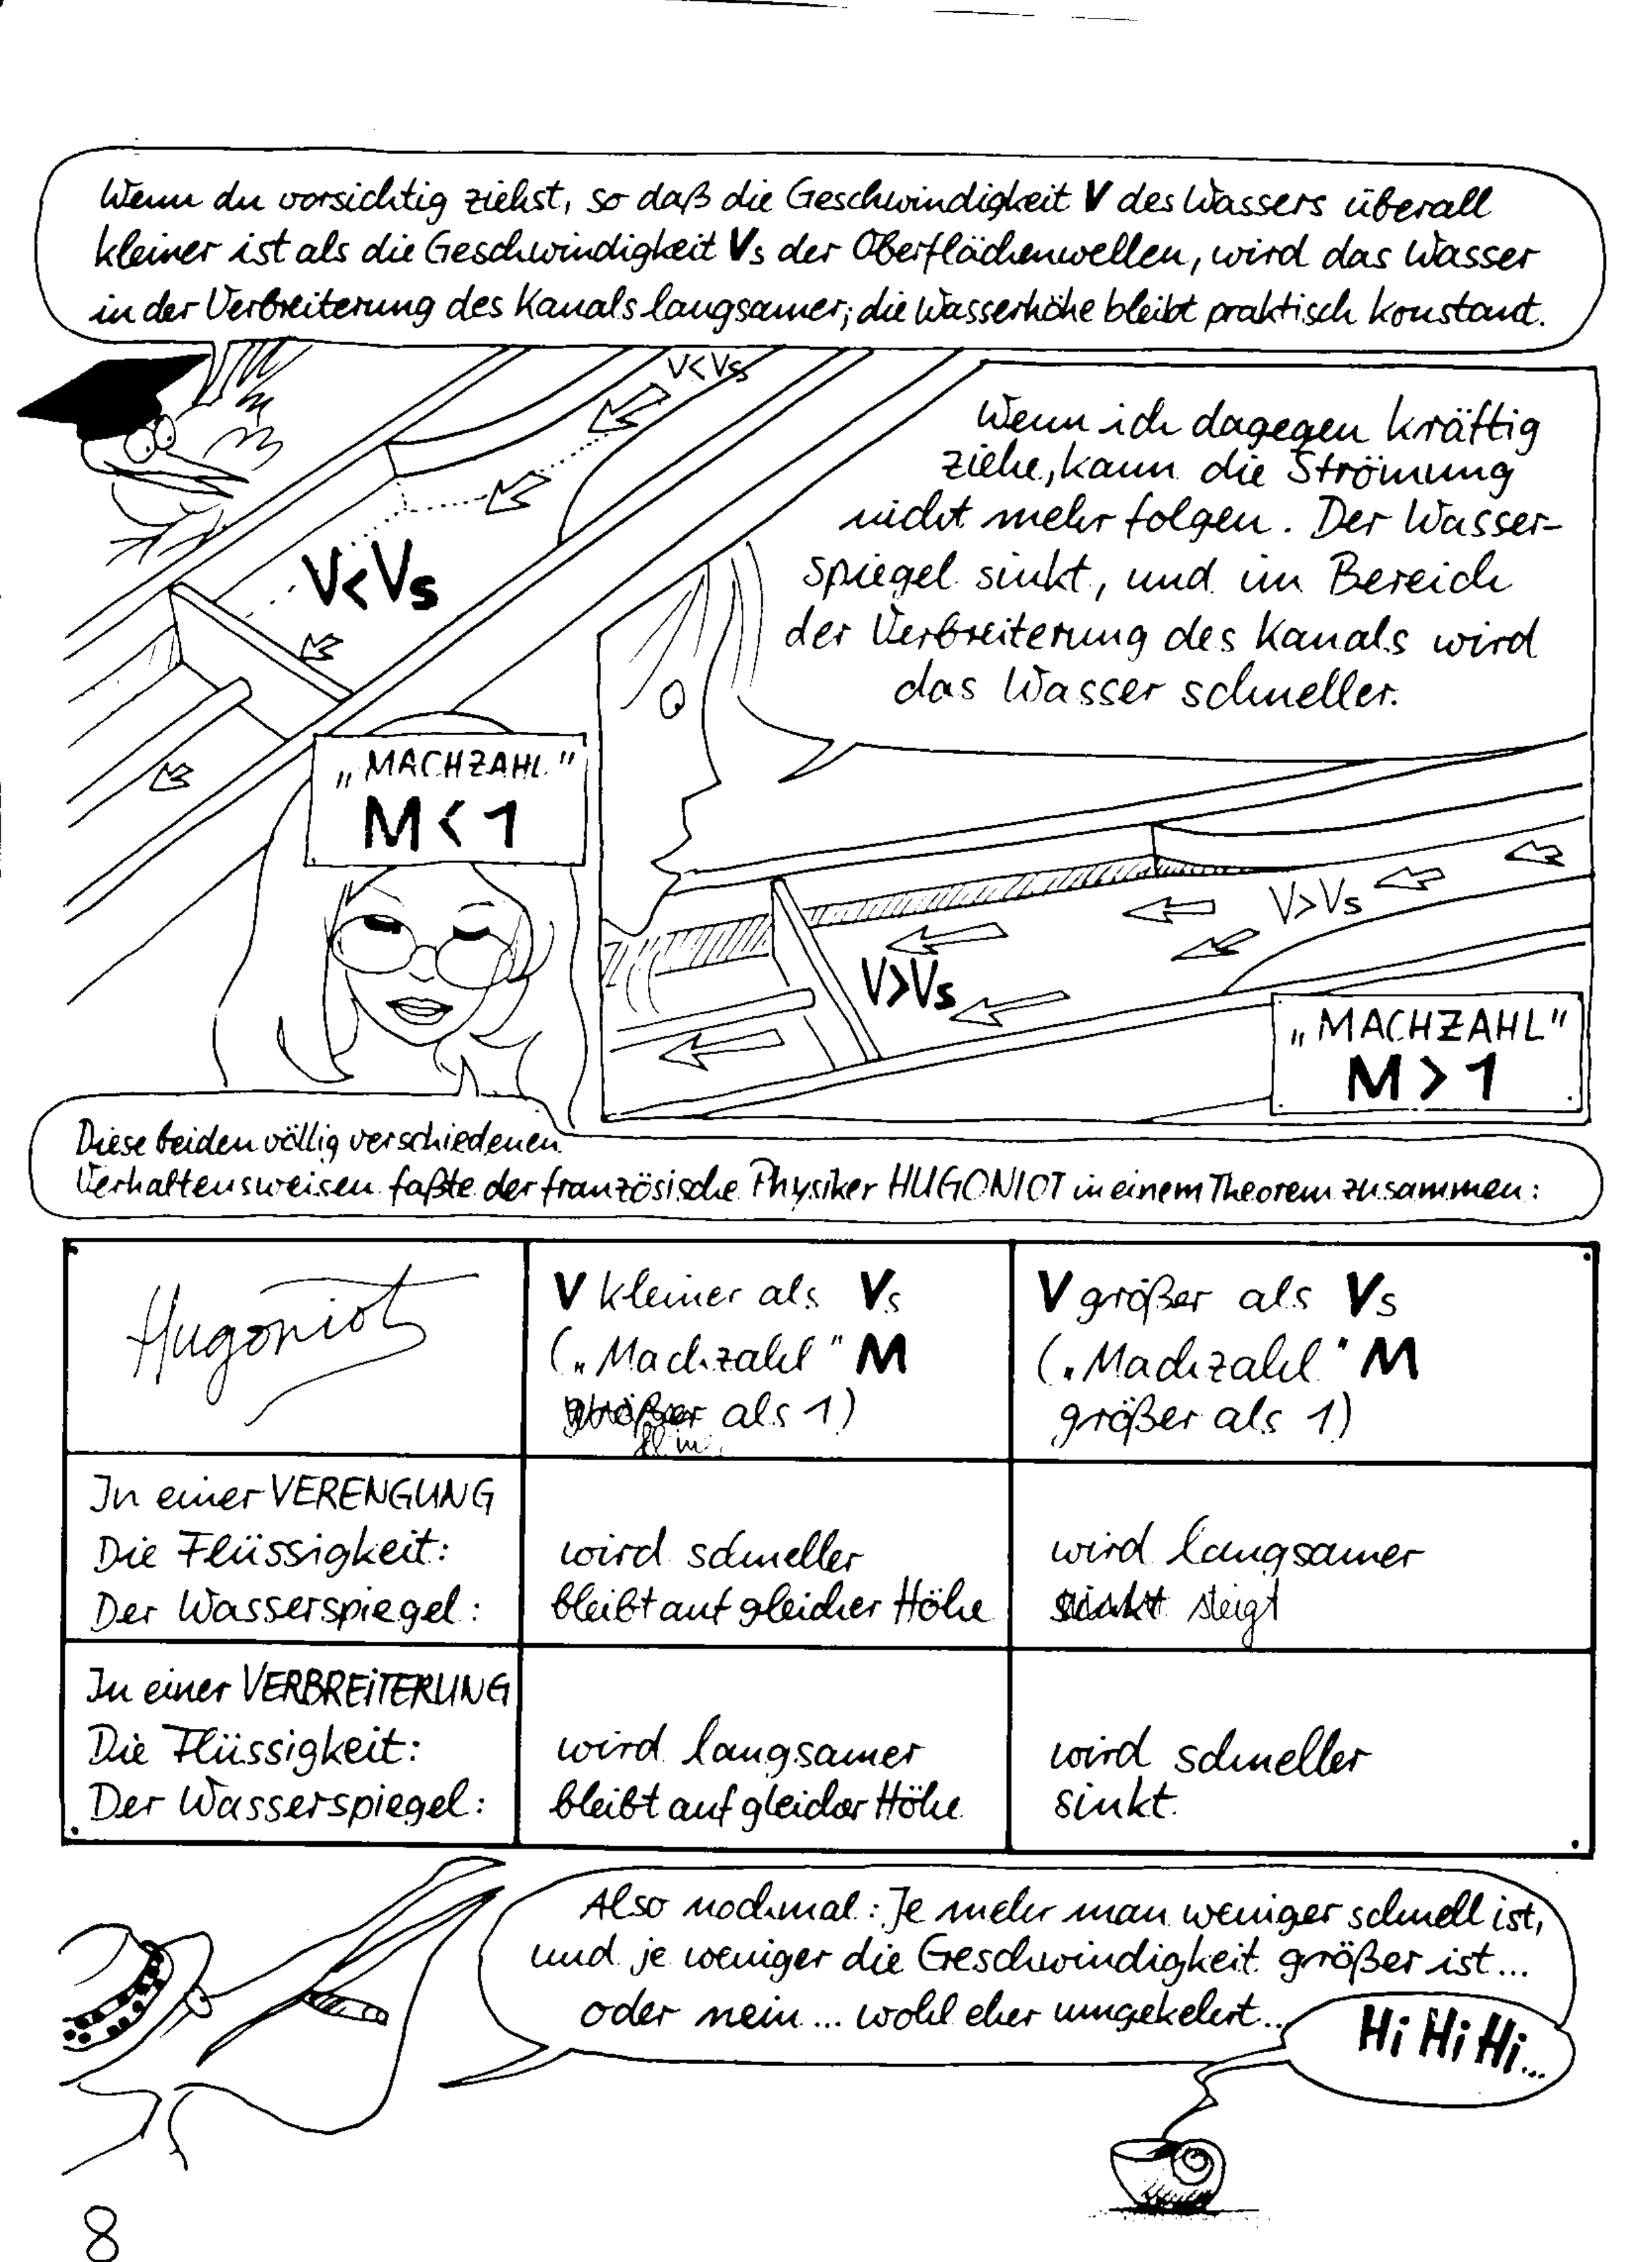 Wenn du vorsichtig ziehst, so daß die Geschwindigkeit V des Wassers überall
kleiner ist als die Geschwindigkeit Vs der Oberflächenwellen, wird das Wasser
in der Verbreiterung des Kanals langsamer; die Wasserhöhe bleibt praktisch konstant.
V<Vs
V<Vs
Wenn ich dagegen kräftig
ziehe, kann die Strömung
nicht mehr folgen. Der Wasser-
spiegel sinkt, und im Bereich
der Verbreiterung des Kanals wird
das Wasser schneller.
„MACHZAHL"
M<1
V>Vs
V>Vs
„MACHZAHL"
M>1
Diese beiden völlig verschiedenen
Verhaltensweisen faßte der französische Physiker HUGONIOT in einem Theorem zusammen:
Hugoniot
V kleiner als Vs
(„Machzahl" M
größer als 1)
V größer als Vs
(„Machzahl" M
größer als 1)
In einer VERENGUNG
Die Flüssigkeit: wird schneller wird langsamer
Der Wasserspiegel: bleibt auf gleicher Höhe sinkt steigt
In einer VERBREITERUNG
Die Flüssigkeit: wird langsamer wird schneller
Der Wasserspiegel: bleibt auf gleicher Höhe sinkt.
Also nochmal: Je mehr man weniger schnell ist,
und je weniger die Geschwindigkeit größer ist...
oder nein... wohl eher umgekehrt...
Hi Hi Hi...
8